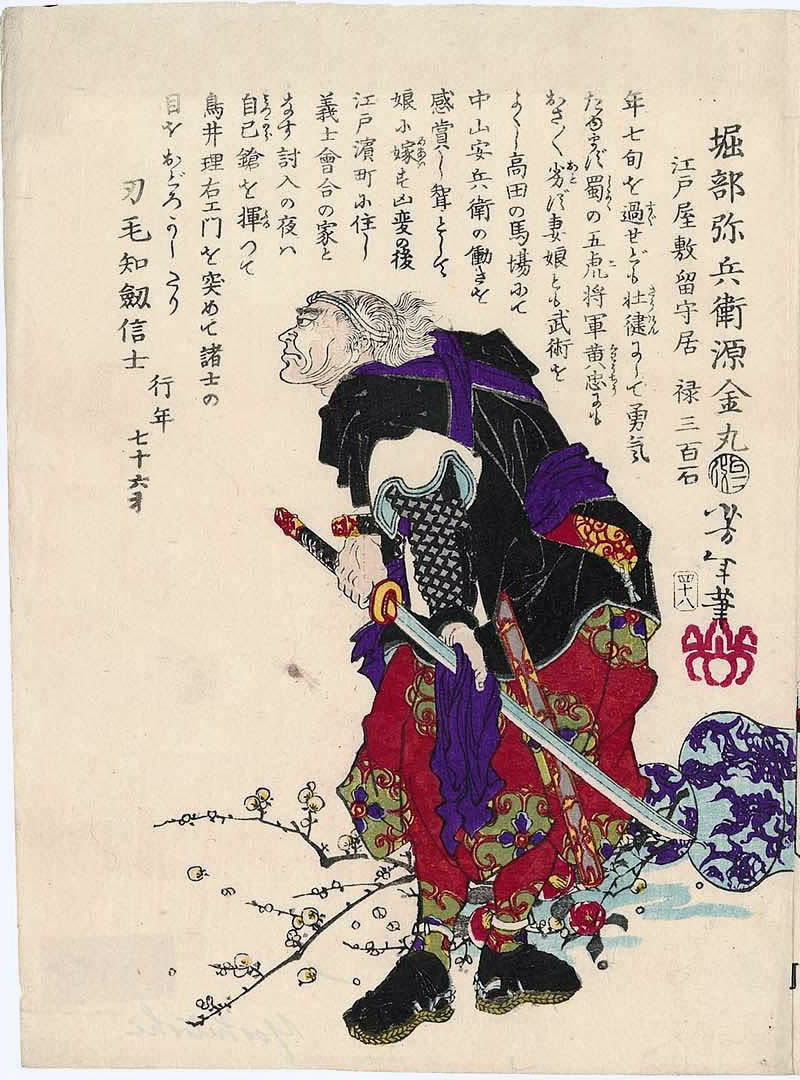 堀部弥兵衛源金丸
江戸屋敷留守居　禄三百石
年七旬を過せども壮健にして勇気
蜀の五虎将軍黄忠にも
おさ〳〵劣ず妻娘とも武術を
よくし高田の馬場にて
中山安兵衛の働きを
感賞し聟として
娘に嫁す凶変の後
江戸濱町に住し
義士會合の家と
なす討入の夜ハ
自己鎗を揮つて
鳥井理右エ門を突めて諸士の
目をおどろかしたり
刃毛知劔信士
行年
七十六才
芳年筆
四十八